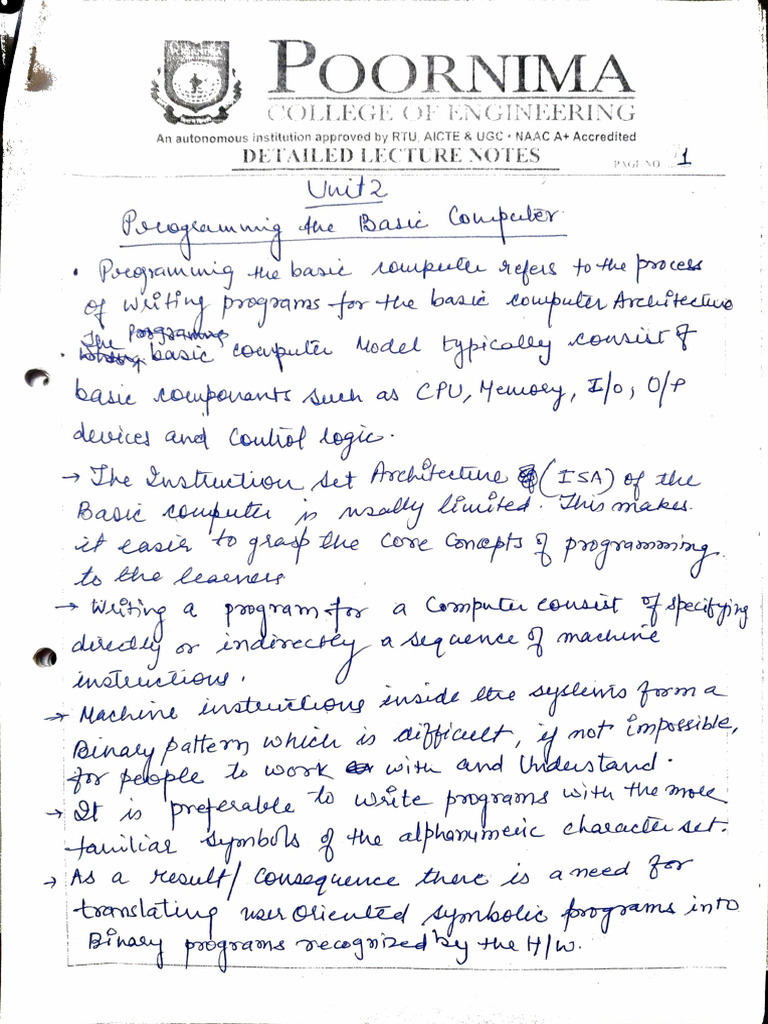 POORNIMA
COLLEGE OF ENGINEERING
An autonomous institution approved by RTU, AICTE & UGC • NAAC A+ Accredited
DETAILED LECTURE NOTES
PAGE NO. 1
Unit 2
Programming the Basic Computer
• Programming the basic computer refers to the process
of writing programs for the basic computer Architecture
• The Programming basic computer Model typically consist of
basic components such as CPU, Memory, I/O, O/P
devices and control logic.
→ The Instruction set Architecture (ISA) of the
Basic computer is usally limited. This makes
it easier to grasp the core concepts of programming
to the learners
→ Writing a program for a computer consist of specifying
directly or indirectly a sequence of machine
instructions.
→ Machine instructions inside the systems form a
Binary pattern which is difficult, if not impossible,
for people to work with and Understand.
→ It is preferable to write programs with the more
familiar symbols of the alphanumeric character set.
→ As a result/consequence there is a need for
translating user oriented symbolic programs into
Binary programs recognized by the H/W.